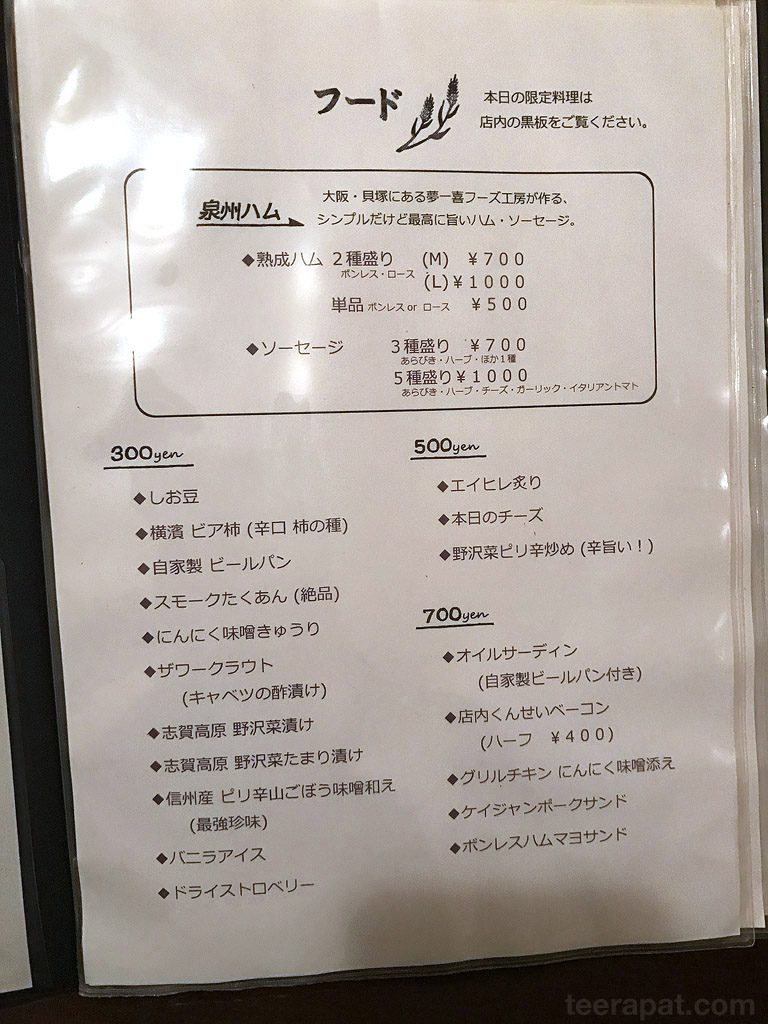 フード
本日の限定料理は
店内の黒板をご覧ください。
泉州ハム
大阪・貝塚にある夢一喜フーズ工房が作る、
シンプルだけど最高に旨いハム・ソーセージ。
◆熟成ハム ２種盛り (M) ￥７００
ボンレス・ロース
(L)￥１０００
単品 ボンレス or ロース ￥５００
◆ソーセージ ３種盛り ￥７００
あらびき・ハーブ・ほか１種
５種盛り￥１０００
あらびき・ハーブ・チーズ・ガーリック・イタリアントマト
300yen
◆しお豆
◆横濱 ビア柿 (辛口 柿の種)
◆自家製 ビールパン
◆スモークたくあん (絶品)
◆にんにく味噌きゅうり
◆ザワークラウト
(キャベツの酢漬け)
◆志賀高原 野沢菜漬け
◆志賀高原 野沢菜たまり漬け
◆信州産 ピリ辛山ごぼう味噌和え
(最強珍味)
◆バニラアイス
◆ドライストロベリー
500yen
◆エイヒレ炙り
◆本日のチーズ
◆野沢菜ピリ辛炒め (辛旨い！)
700yen
◆オイルサーディン
(自家製ビールパン付き)
◆店内くんせいベーコン
(ハーフ ￥４００)
◆グリルチキン にんにく味噌添え
◆ケイジャンポークサンド
◆ボンレスハムマヨサンド
teerapat.com